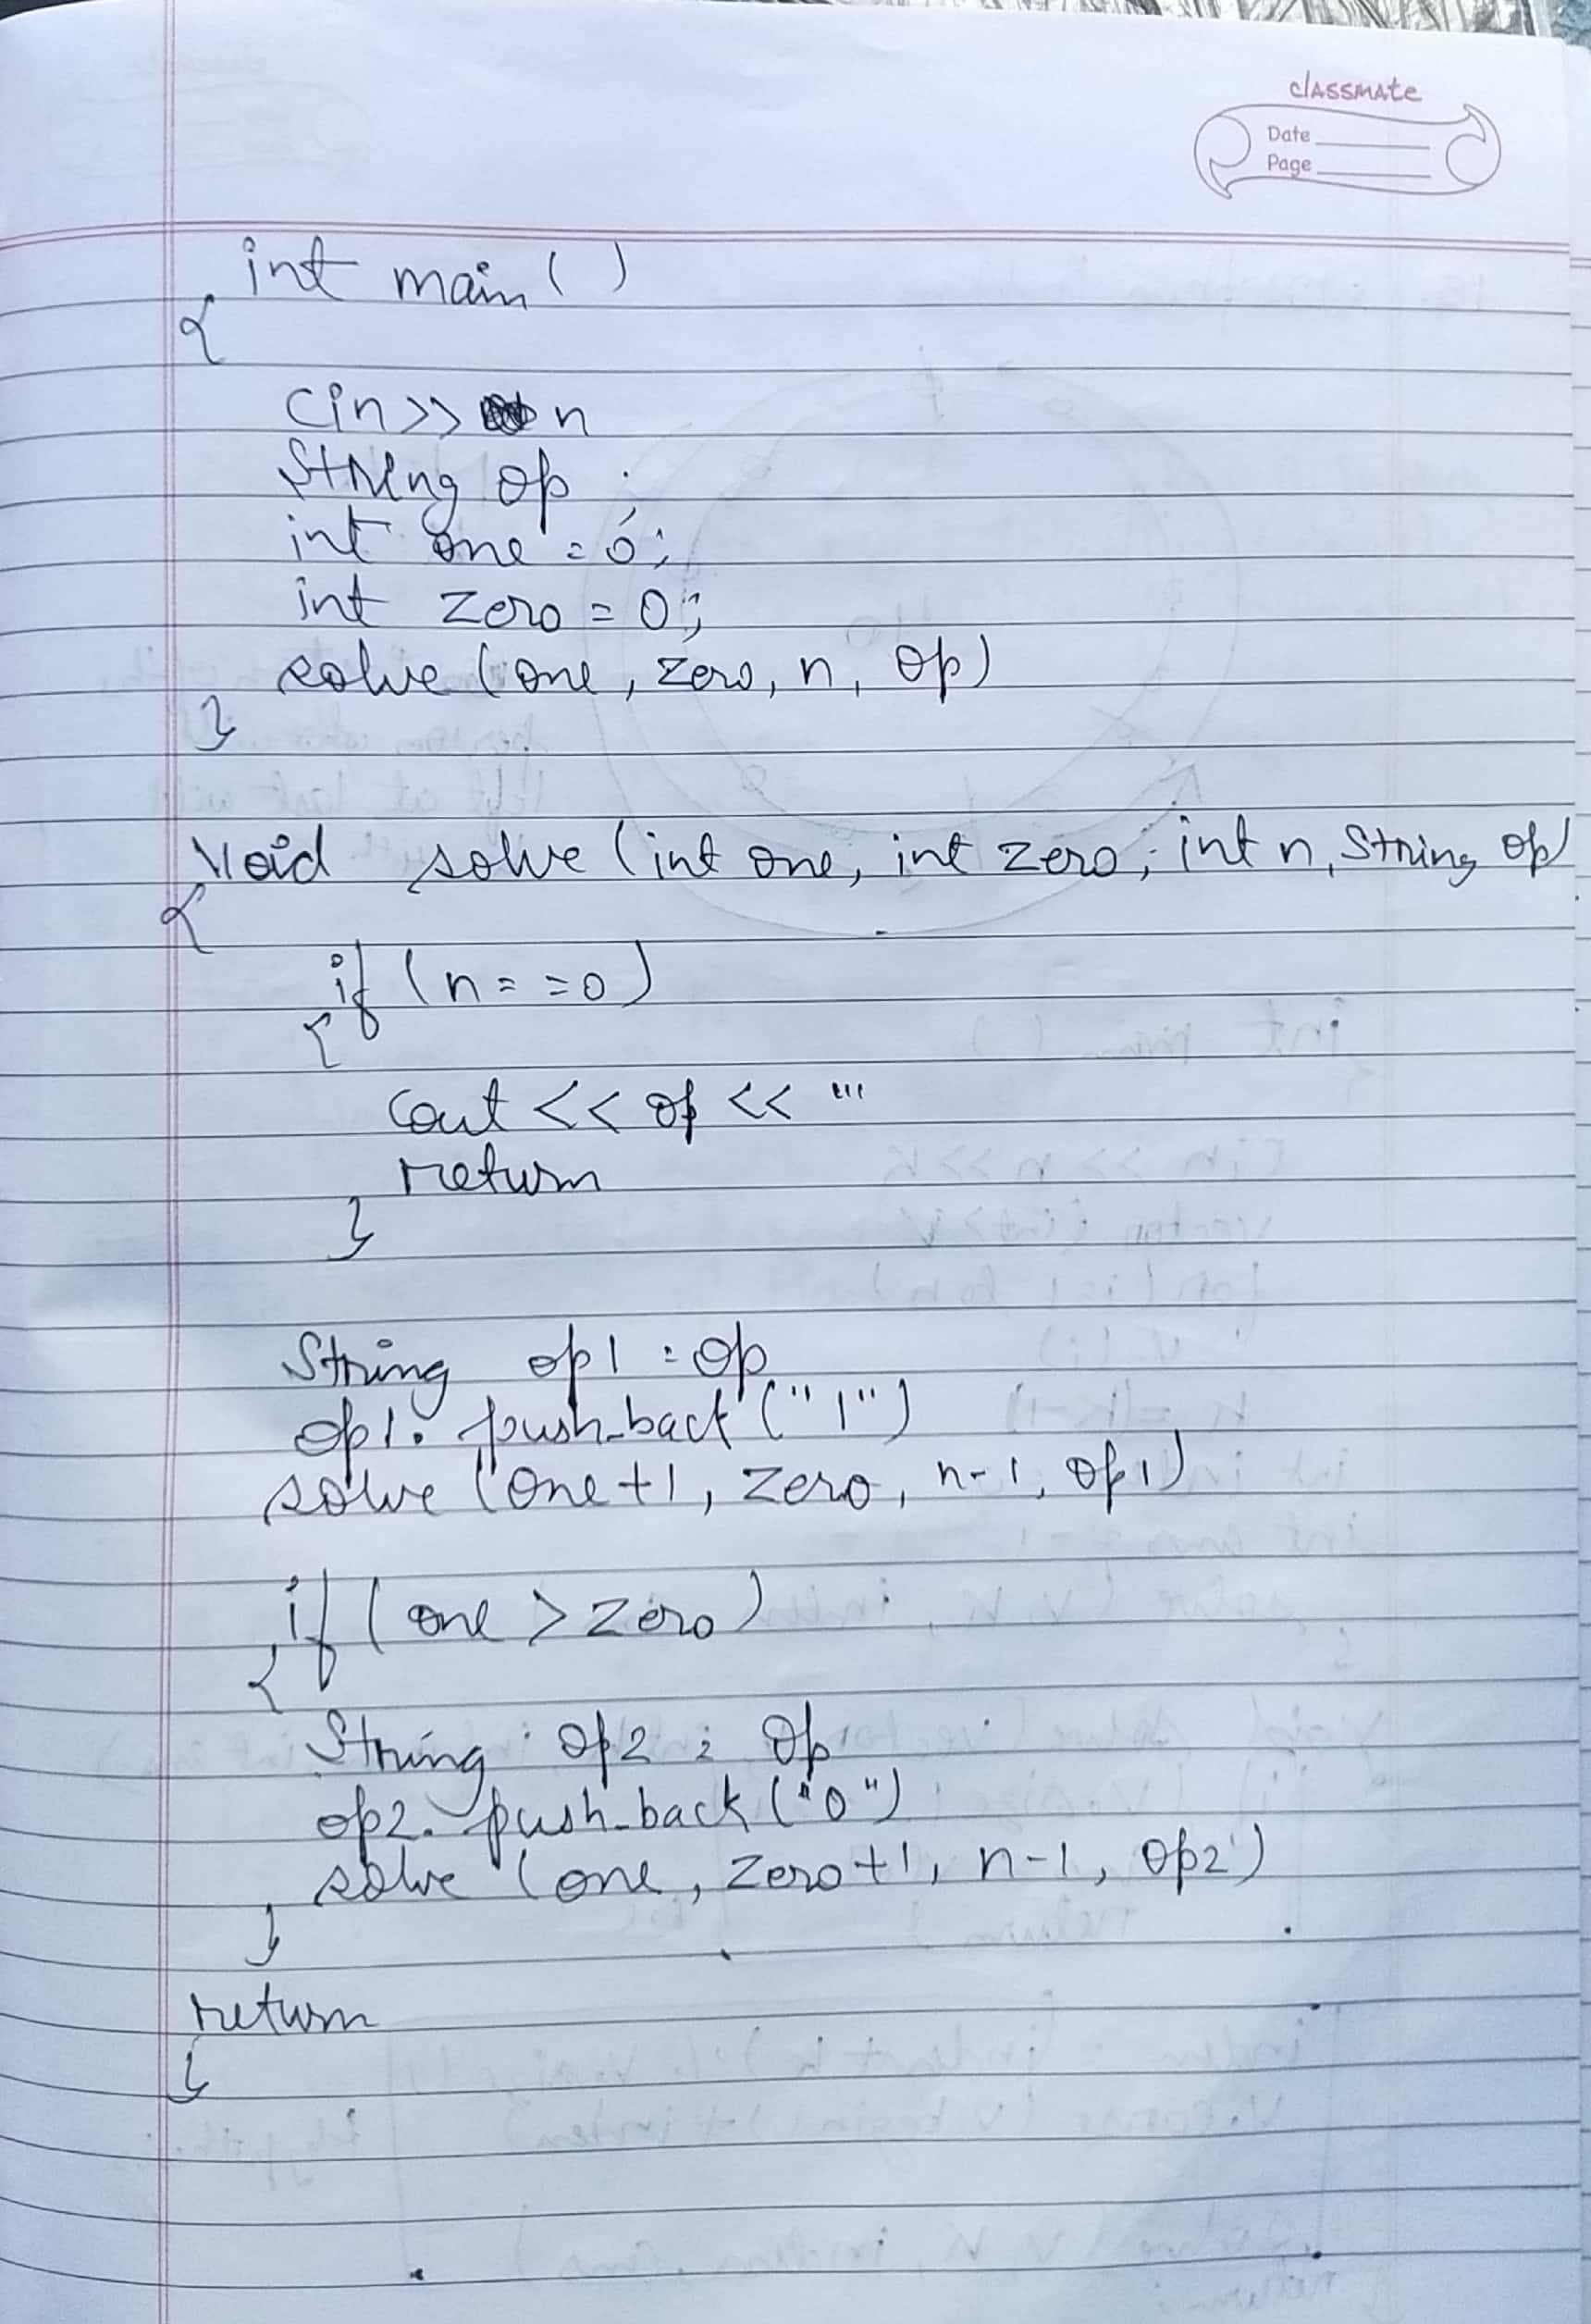 classmate
Date
Page
int main ( )
{
cin >> n
String op
int one = 0;
int zero = 0;
solve (one, zero, n, op)
}
Void solve (int one, int zero, int n, String op)
{
if (n = = 0)
{
cout << op << "'
return
}
String op1 = op
op1. push_back ("1")
solve (one+1, zero, n-1, op1)
if (one > zero)
{
String op2 = op
op2. push_back ("0")
solve (one, zero+1, n-1, op2)
}
return
}